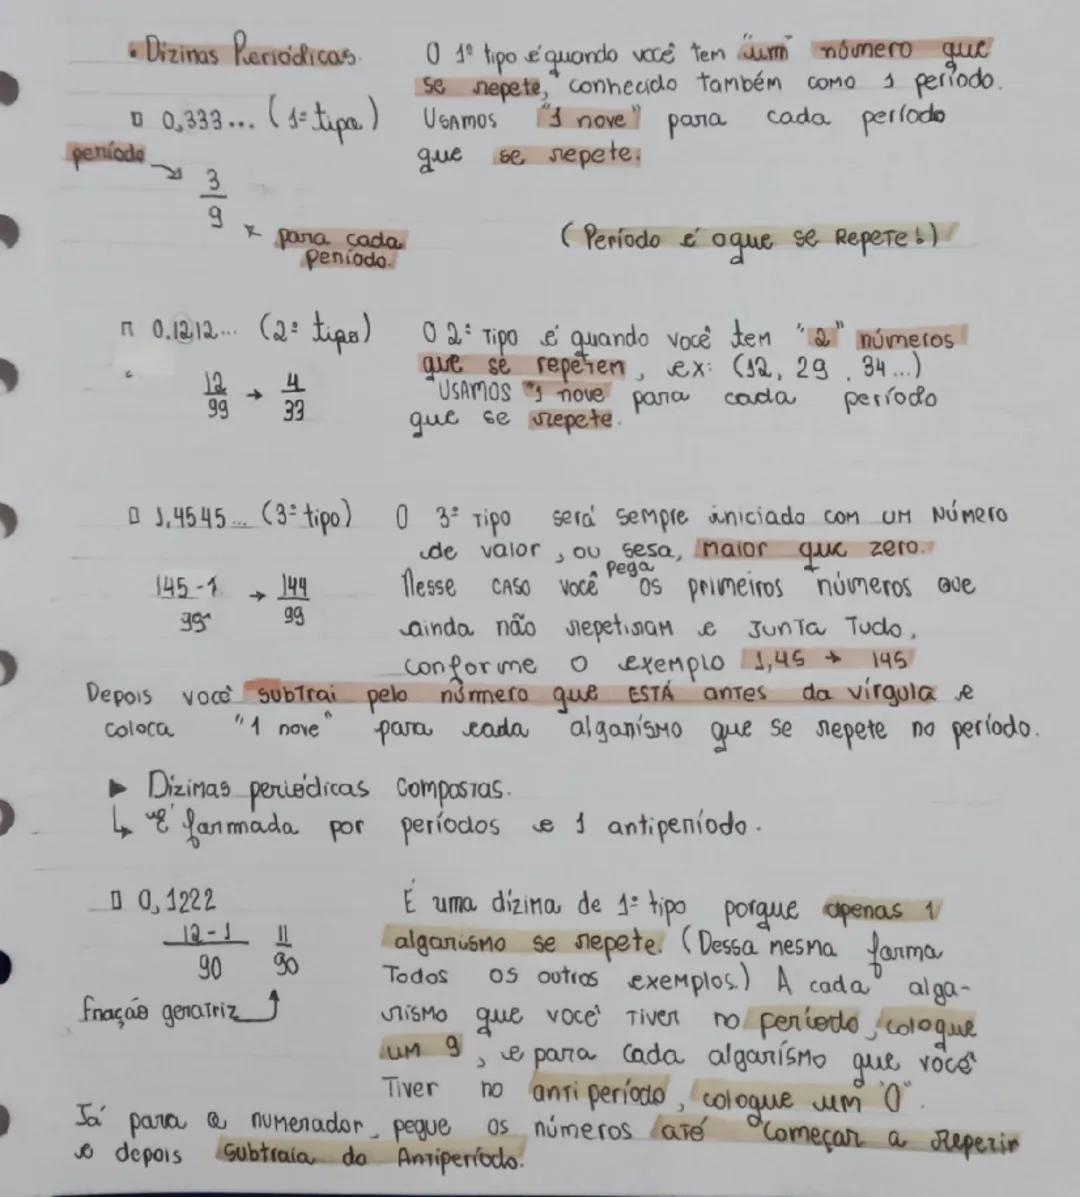 • Dízimas Periódicas.
O 1º tipo é quando você tem "um" número que
se repete, conhecido também como 1 período.
0,333... (1º tipo)
Usamos "1 nove" para cada período
que se repete.
período
3
9
para cada
período.
(Período é oque se Repete!)
0,1212... (2º tipo)
O 2º Tipo é quando você tem "2" números
que se repetem, ex: (12, 29, 34...)
12/99 → 4/33
Usamos "1 nove" para cada período
que se repete.
1,4545... (3º tipo)
O 3º Tipo será sempre iniciado com um Número
de valor, ou sesa, maior que zero.
145-1/99 → 144/99
Nesse caso você pega os primeiros números que
ainda não repetiram e Junta Tudo,
conforme o exemplo 1,45 → 145
Depois você subtrai pelo número que está antes da vírgula e
coloca "1 nove" para cada algarismo que se repete no período.
► Dízimas periódicas Compostas.
↳ "É formada por períodos e 1 antiperíodo.
0,1222
É uma dízima de 1º tipo porque apenas 1
12-1/90 11/90
algarismo se repete. (Dessa mesma forma
Todos os outros exemplos.) A cada alga-
fração geratriz
rismo que você Tiver no período, coloque
um 9, e para cada algarismo que você
Tiver no antiperíodo, coloque um "0".
Já para o numerador, pegue os números até "começar a Repetir
e depois subtraia do Antiperíodo.